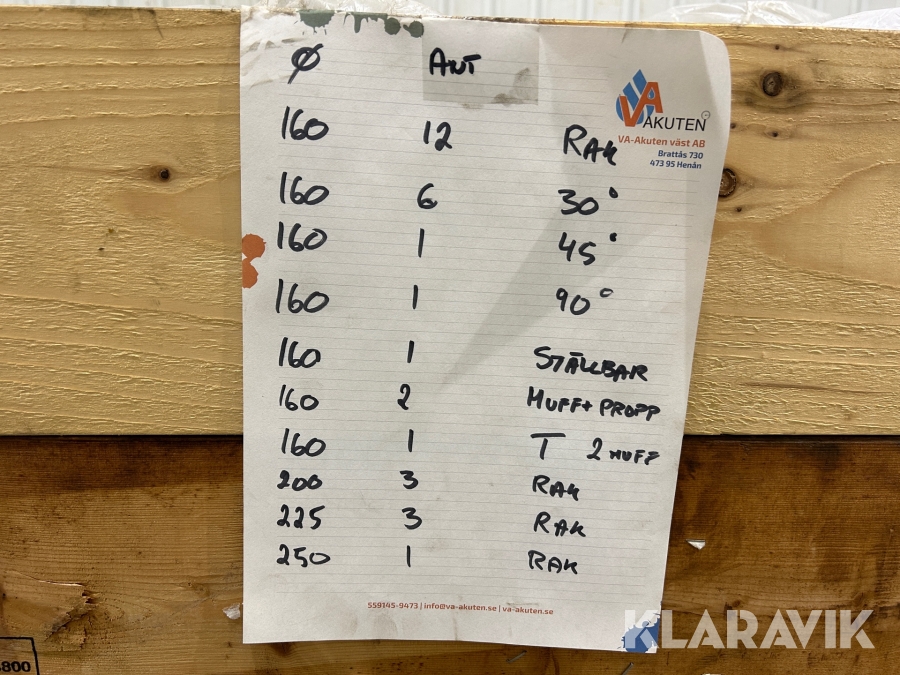 Ø ANT
VA AKUTEN
VA-Akuten väst AB
Brattås 730
473 95 Henån
160 12 RAK
160 6 30°
160 1 45°
160 1 90°
160 1 STÄLLBAR
160 2 MUFF + PROPP
160 1 T 2 MUFF
200 3 RAK
225 3 RAK
250 1 RAK
559145-9473 | info@va-akuten.se | va-akuten.se
KLARAVIK